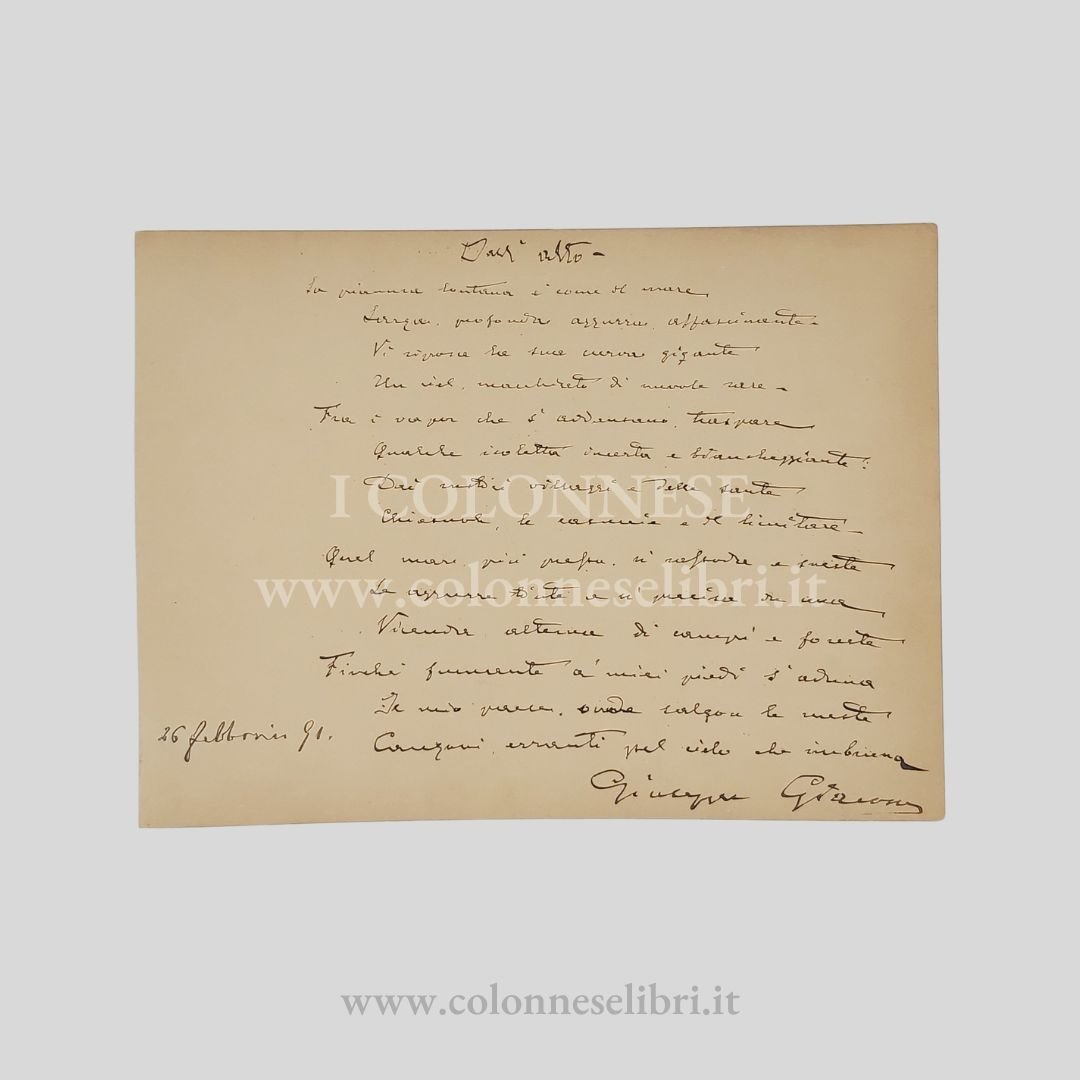 Dall' alto -
La pianura lontana è come il mare
Larga, profonda azzurra, affascinante -
Vi riposa la sua curva gigante
Un ciel, macchiato di nuvole rare -
Fra i vapor che s'addensano, traspare
Qualche isoletta incerta e biancheggiante:
Dei nostri villaggi e delle sante
I COLONNESE
Chiesuole, le casine e il limitare -
Quel mare, più presso, si rassoda e sveste
www.colonneselibri.it
Le azzurre tinte e si precisa in una
Vicenda alterna di campi e foreste
Finchè fumante a' miei piedi s'aduna
Il mio paese, onde salgon le meste
26 febbraio 91.
Canzoni, erranti pel cielo che imbruna
Giuseppe Giacosa
www.colonneselibri.it